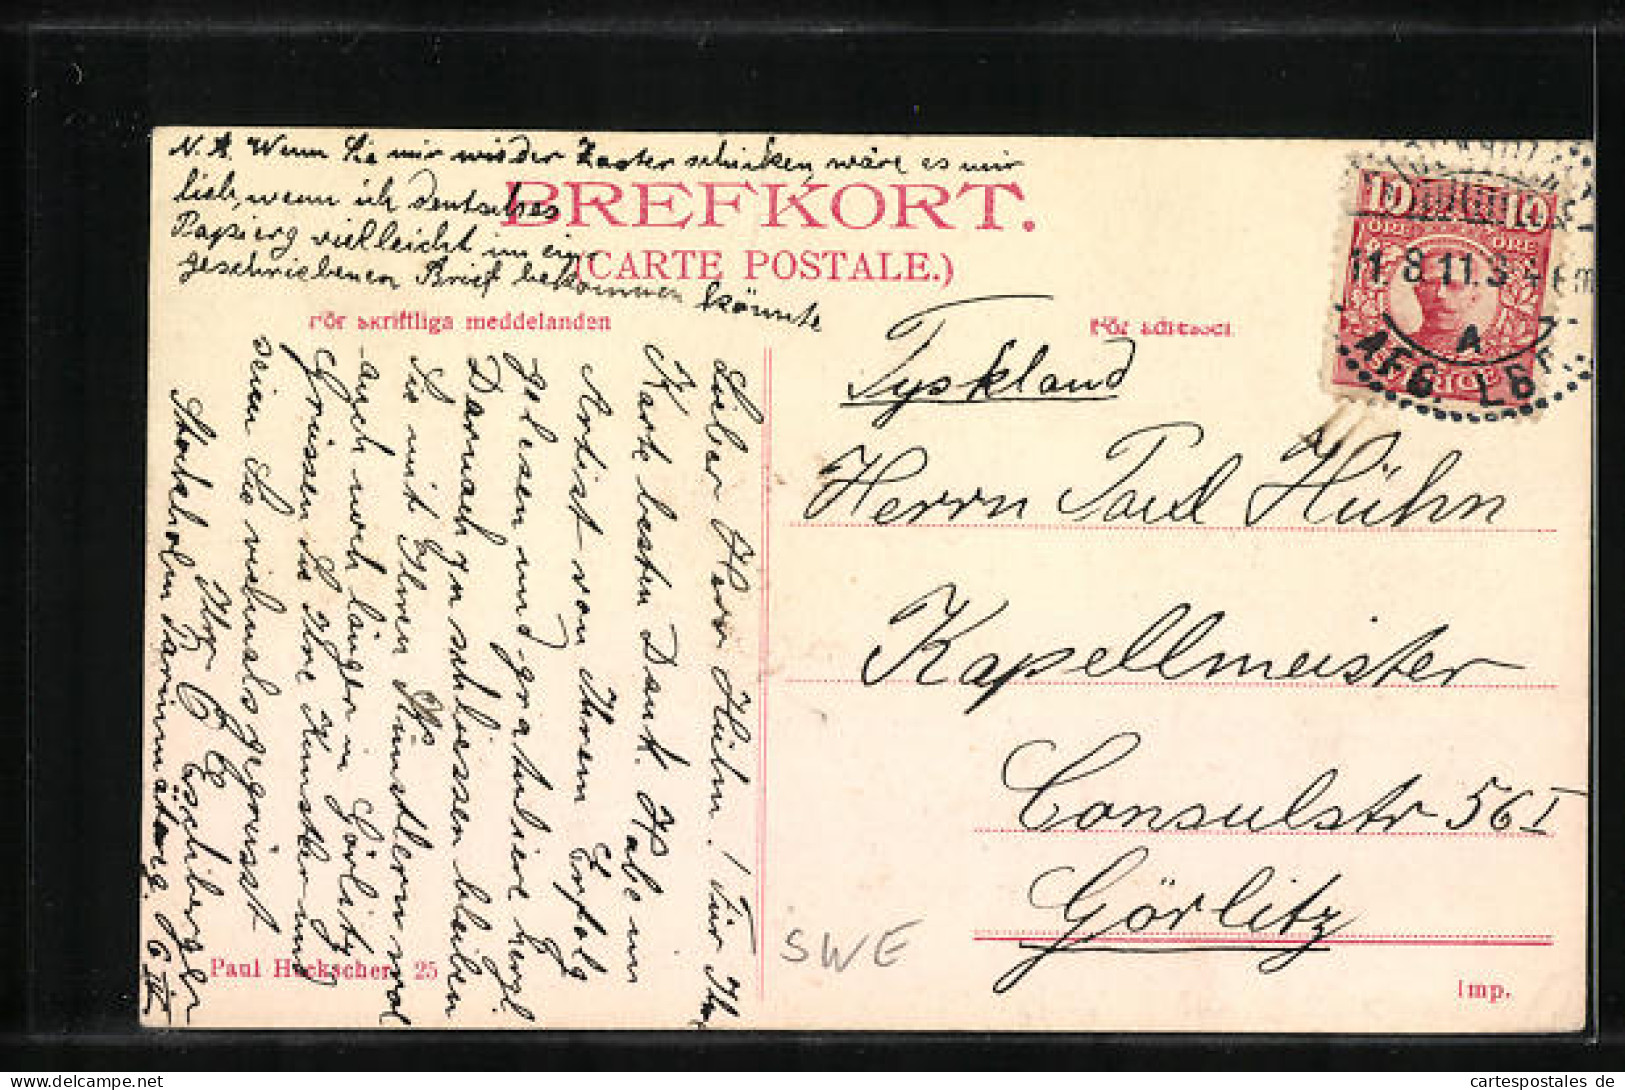 N. A. Wenn Sie mir wieder schicken, wäre es mir
lieb, wenn ich deutsches
Papier vielleicht im
geschriebenen Brief bekommen könnte
BREFKORT.
(CARTE POSTALE.)
För skriftliga meddelanden
För adressen
10 10
ÖRE ÖRE
SVERIGE
11.8.11.
A
AFG. LBR
Lieber Herr Hühn! Für Ihre
Karte besten Dank. Habe im
Artist von Ihrem Erfolg
gelesen und gratuliere herzl.
Darnach zu schliessen bleiben
Sie mit Ihren Künstlern wol
auch noch länger in Görlitz
Grüssen Sie Ihre Künstler und
seien Sie vielmals gegrüsst
Ihr
Stockholm
Tyskland
Herrn Paul Hühn
Kapellmeister
Consulstr 56 I
Görlitz
SWE
Paul Heckscher, 25
Imp.
cartespostales.de